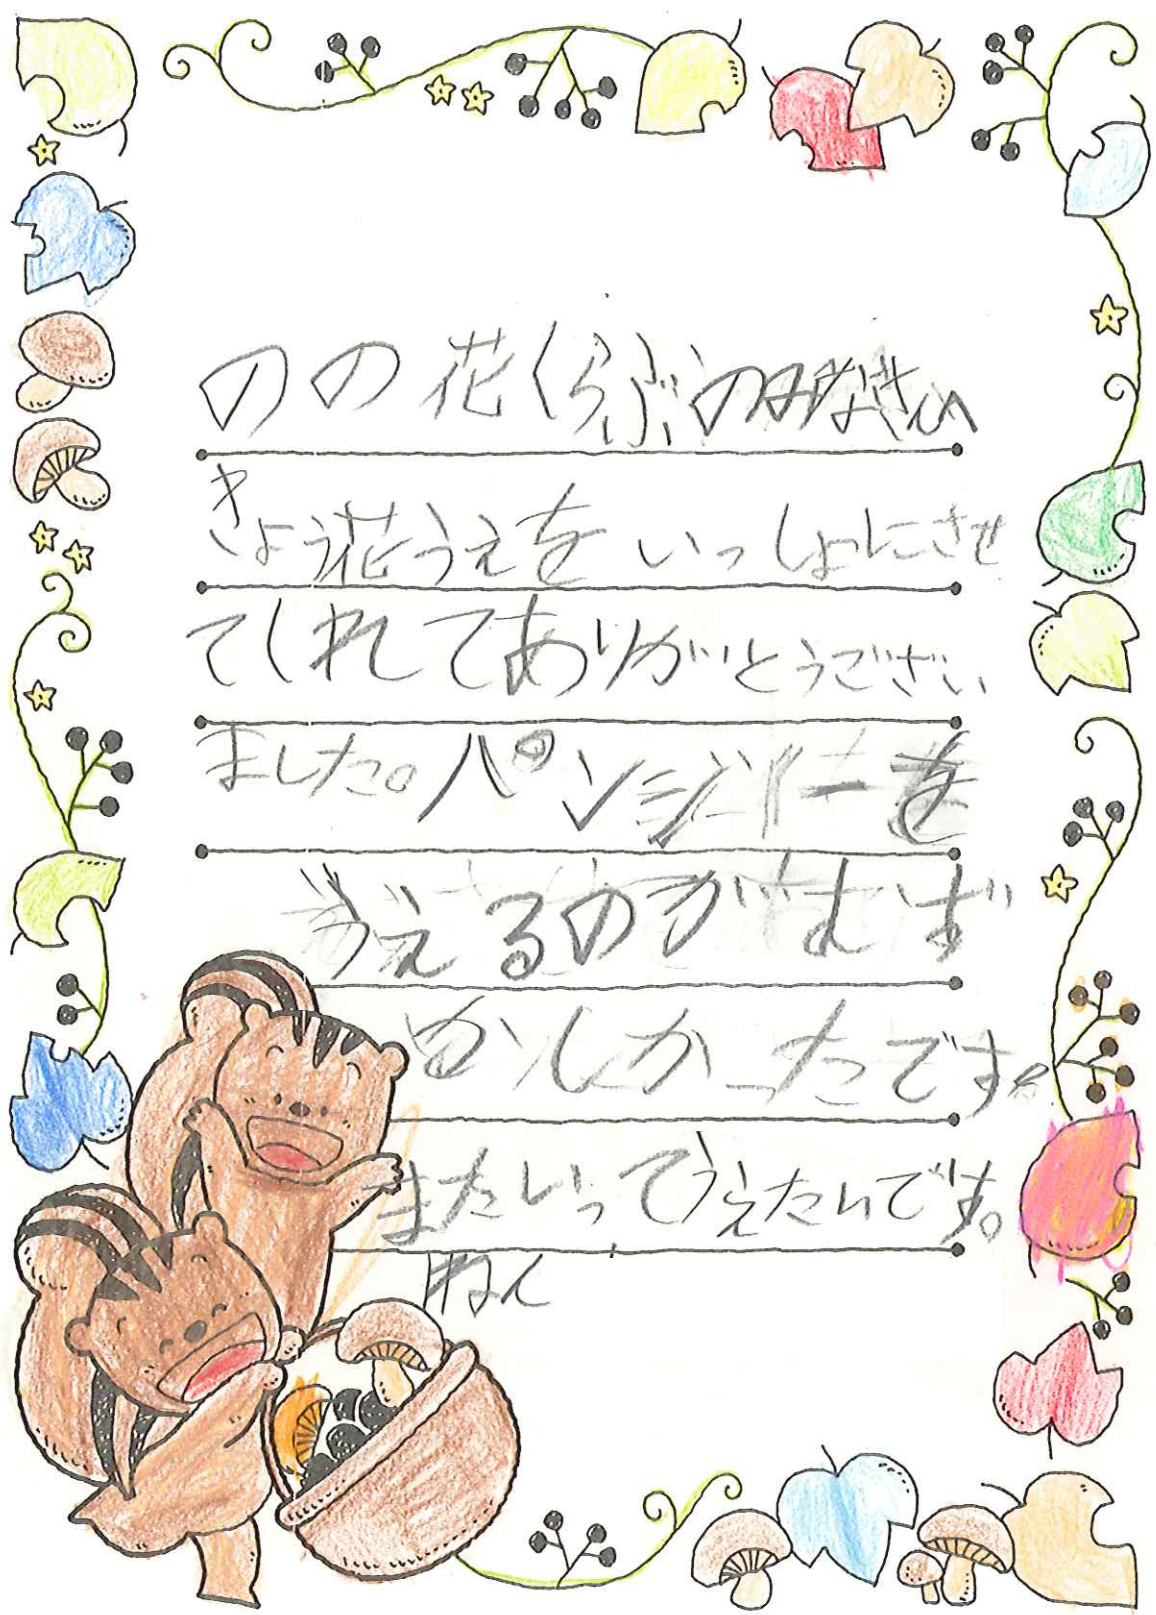 のの花くらぶのみなさんへ
きょう花うえをいっしょにさせ
てくれてありがとうござい
ました。パンジーを
うえるのがむず
かしかったです。
またいってうえたいです。